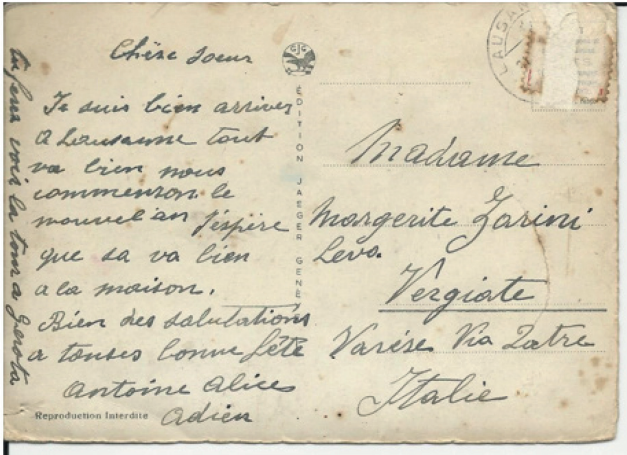 Chère soeur
Je suis bien arrivés
a Lausanne tout
va bien nous
commenzon le
nouvel an j'éspère
que sa va bien
a la maison.
Bien des salutations
a toutes bonne fête
Antoine Alice
Adien
tu feras voir la
Reproduction Interdite
CJG
EDITION JAEGER GENÈ
LAUSAN
Madame
Margerite Zarini
Leva.
Vergiate
Varése Via Zatre
Italie